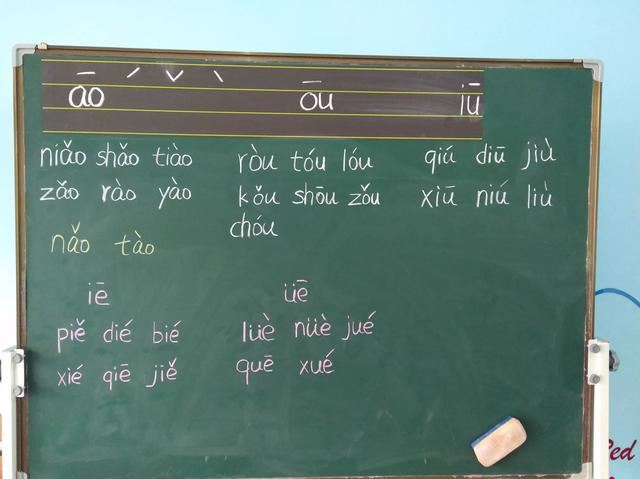 āo ōu iū
niǎo shǎo tiào ròu tóu lóu qiú diū jiù
zǎo rào yào kǒu shōu zǒu xiū niú liù
chóu
nǎo tào
iē üē
piě dié bié lüè nüè jué
xié qiē jiě quē xué